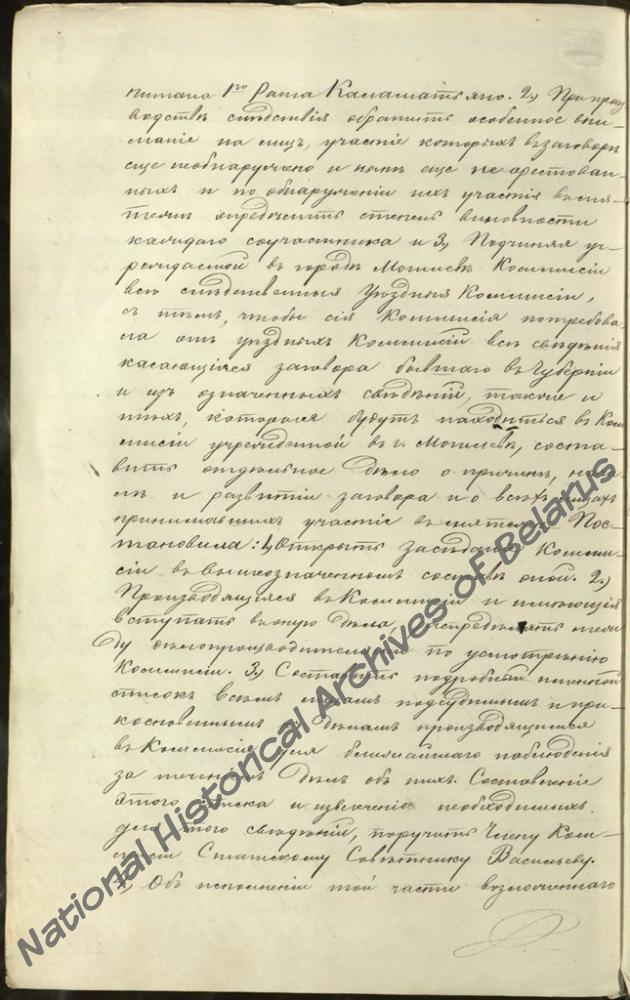 питана 1го Ранга Каламатьяно. 2) При произ
водствѣ слѣдствія обратить особенное вни
маніе на лицъ, участіе которыхъ въ заговорѣ
еще необнаружено и кои еще не арестован
ныхъ и по обнаруженіи ихъ участія въ мя
тежѣ опредѣлить степень виновности
каждаго соучастника и 3) Подчиняя уч
реждаемой въ городѣ Могилевѣ Коммисіи
всѣ слѣдственныя Уѣздныя Коммисіи,
съ тѣмъ, чтобы сія Коммисія потребова
ла отъ уѣздныхъ Коммисій всѣ свѣдѣнія
касающіяся заговора бывшаго въ Губерніи
и изъ означенныхъ свѣдѣній, также и
тѣхъ, которыя будутъ находиться въ Ком
мисіи учрежденной въ г. Могилевѣ, соста
вить отдѣльное дѣло о причинѣ, нача
лѣ и развитіи заговора и о всѣхъ лицахъ
принимавшихъ участіе въ мятежѣ. Пос
тановила: 1) Открыть засѣданіе Комми
сіи въ вышеозначенномъ составѣ оной. 2)
Производящіяся въ Коммисіи и имѣющія
вступать въ оную дѣла распредѣлять меж
ду дѣлопроизводителями по усмотрѣнію
Коммисіи. 3) Составить подробный именной
списокъ всѣмъ лицамъ подсудимымъ и при
косновеннымъ къ дѣламъ производящимся
въ Коммисіи для ближайшаго наблюденія
за теченіемъ дѣлъ объ нихъ. Составленіе
этого списка и извлеченіе необходимыхъ
для того свѣдѣній, поручить Члену Ком
мисіи Статскому Совѣтнику Васильеву.
4) Объ исполненіи той части возложеннаго
National Historical Archives of Belarus